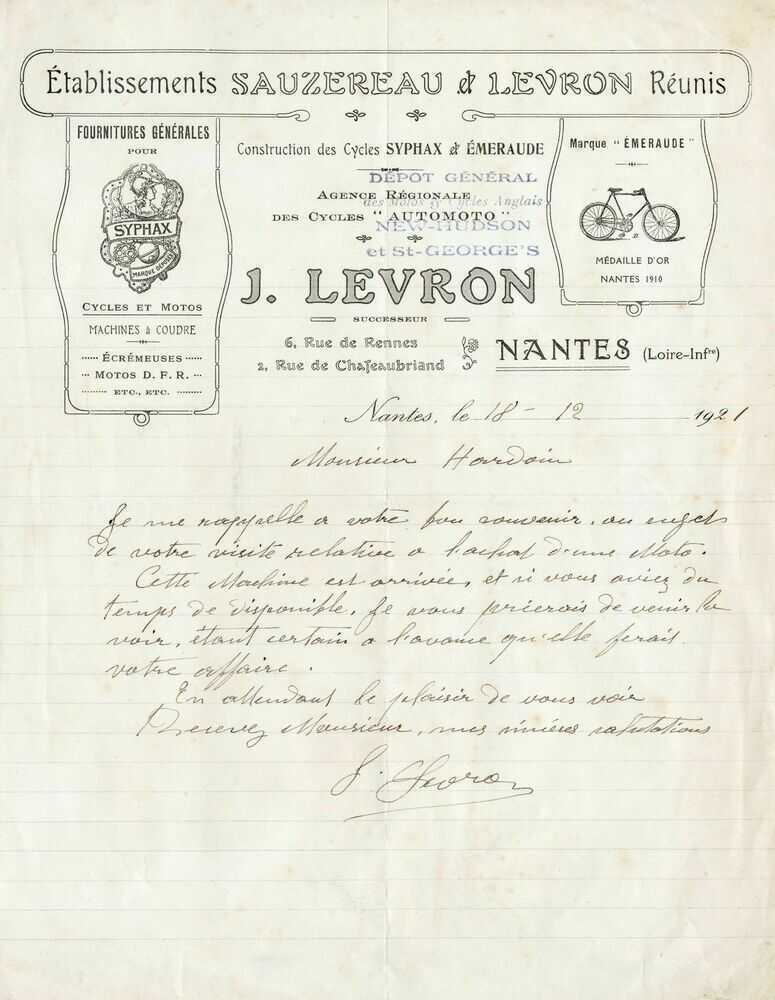 Établissements SAUZEREAU & LEVRON Réunis
FOURNITURES GÉNÉRALES
POUR
SYPHAX
MARQUE DÉPOSÉE
CYCLES ET MOTOS
MACHINES à COUDRE
ÉCRÉMEUSES
MOTOS D. F. R.
ETC., ETC.
Construction des Cycles SYPHAX & ÉMERAUDE
DÉPOT GÉNÉRAL
AGENCE RÉGIONALE
des Motos & Cycles Anglais
DES CYCLES "AUTOMOTO"
NEW-HUDSON
et St-GEORGE'S
J. LEVRON
SUCCESSEUR
6, Rue de Rennes
2, Rue de Chateaubriand
NANTES (Loire-Infre)
Marque "ÉMERAUDE"
MÉDAILLE D'OR
NANTES 1910
Nantes, le 18 - 12 1921
Monsieur Hardoin
Je me rappelle a votre bon souvenir, au sujet
de votre visite relative a l'achat d'une Moto.
Cette Machine est arrivée, et si vous aviez du
temps de disponible, Je vous prierais de venir la
voir, étant certain a l'avance qu'elle ferais
votre affaire.
En attendant le plaisir de vous voir
Recevez Monsieur, mes sincères salutations
J. Levron